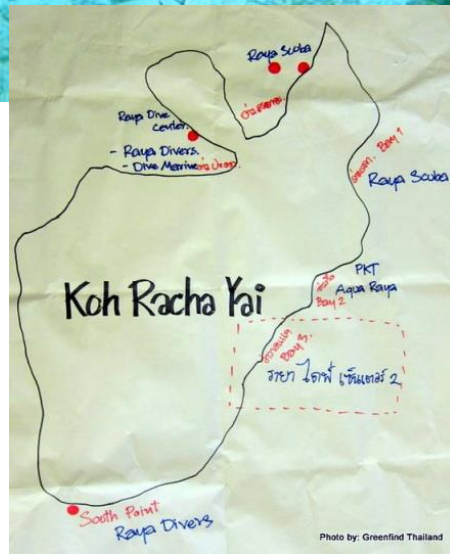 Raya Scuba
Raya Dive
Center.
- Raya Divers.
- Dive Marine
Bay 1
Raya Scuba
PKT
Aqua Raya
Bay 2
Koh Racha Yai
Bay 3.
รายา ไดฟ์ เซ็นเตอร์ 2
South Point
Raya Divers
Photo by: Greenfind Thailand